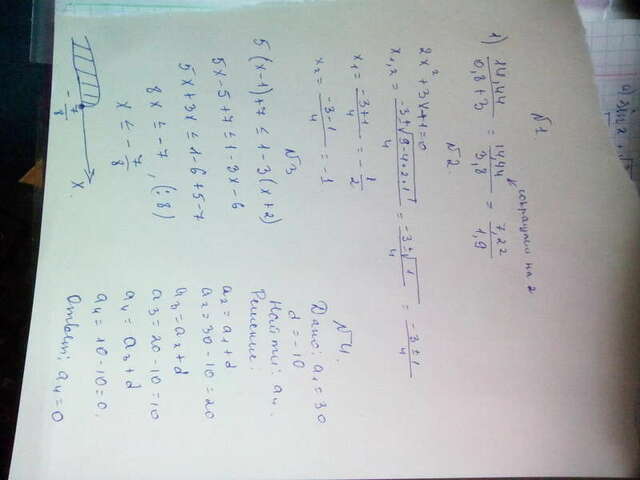 №1.
1) 14,44/(0,8+3) = 14,44/3,8 = 7,22/1,9
сократили на 2
№2.
2x² + 3x + 1 = 0
x₁,₂ = (-3 ± √(9-4·2·1))/4 = (-3 ± √1)/4 = (-3 ± 1)/4
x₁ = (-3+1)/4 = -1/2
x₂ = (-3-1)/4 = -1
№3
5(x-1)+7 ≤ 1-3(x+2)
5x-5+7 ≤ 1-3x-6
5x+3x ≤ 1-6+5-7
8x ≤ -7, (:8)
x ≤ -7/8
-7/8 x
№4.
Дано: a₁ = 30
d = -10
Найти: a₄.
Решение:
a₂ = a₁ + d
a₂ = 30-10 = 20
a₃ = a₂ + d
a₃ = 20-10 = 10
a₄ = a₃ + d
a₄ = 10-10 = 0.
Ответ: a₄ = 0